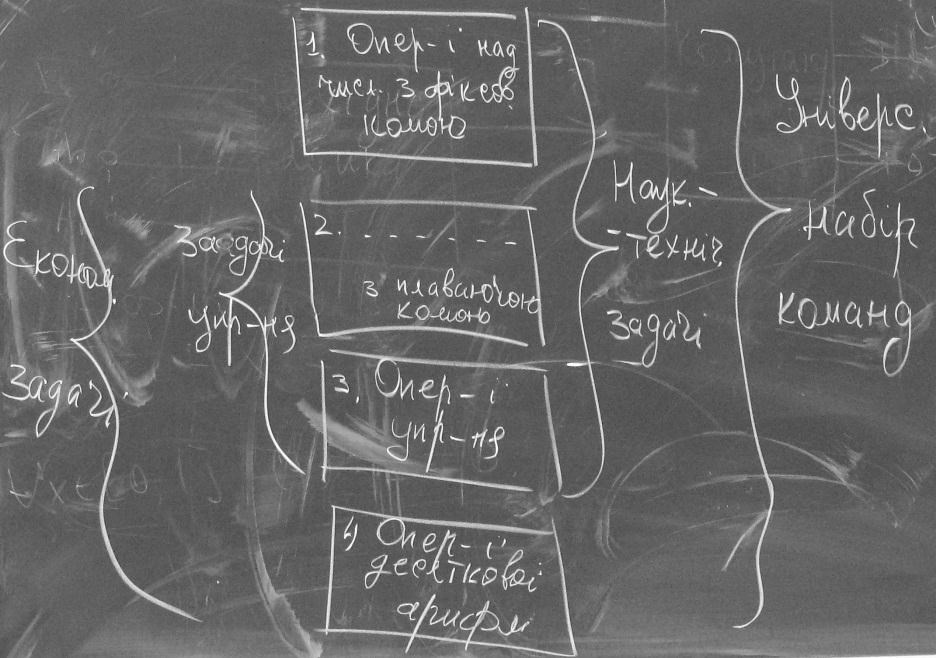 Економ.
Задачі
Заадачі
упр-ня
1. Опер-і над
числ. з фіксов.
комою
2. - - - - - - -
з плаваючою
комою
3. Опер-і
упр-ня
4) Опер-ії
десяткової
арифм
Наук.-
-техніч.
задачі
Універс.
набір
команд